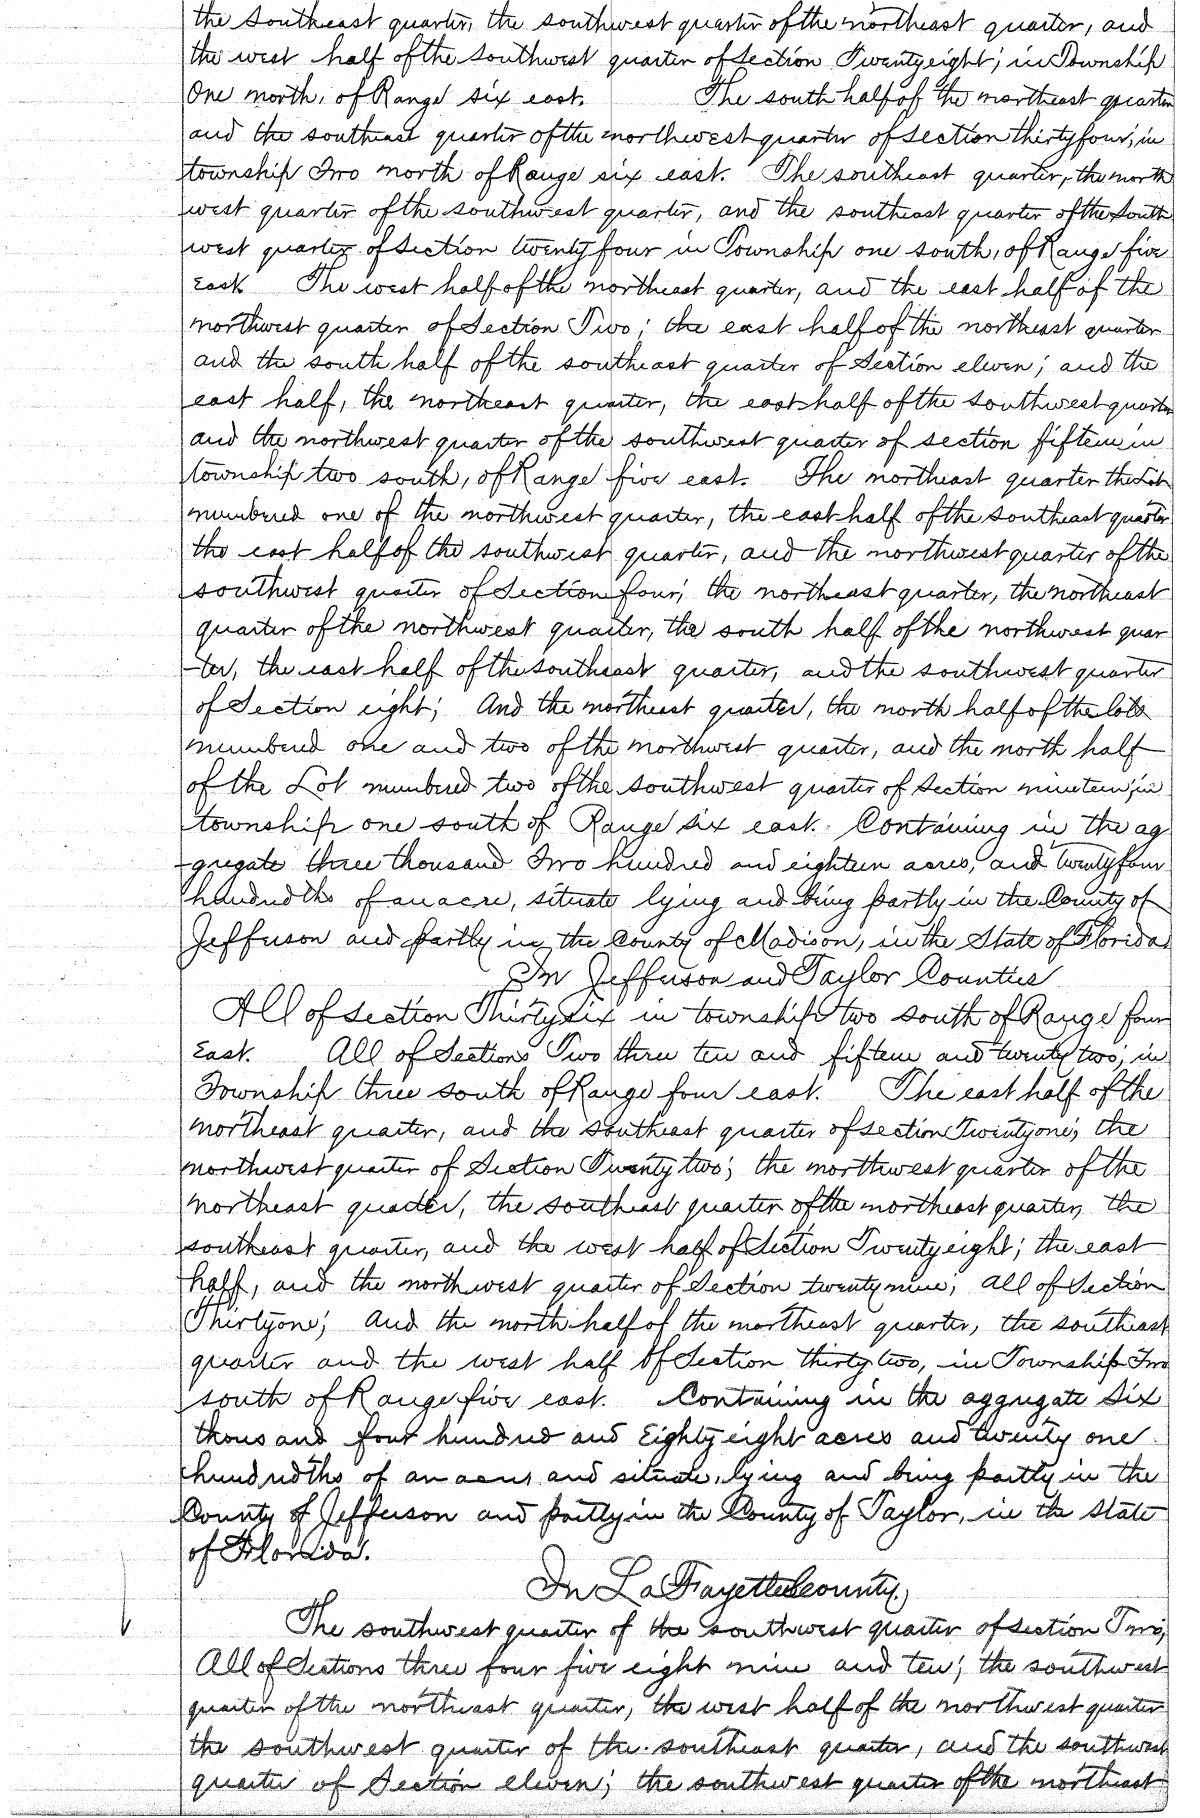 the southeast quarter, the southwest quarter of the northeast quarter, and
the west half of the southwest quarter of Section Twentyeight; in Township
One north, of Range six east. The south half of the northeast quarter
and the southeast quarter of the northwest quarter of section thirtyfour; in
township Two north of Range six east. The southeast quarter, the north
west quarter of the southwest quarter, and the southeast quarter of the south
west quarter of section twentyfour in Township one south, of Range five
East The west half of the northeast quarter, and the east half of the
northwest quarter of Section Two; the east half of the northeast quarter
and the south half of the southeast quarter of Section eleven; and the
east half, the northeast quarter, the east half of the southwest quarter
and the northwest quarter of the southwest quarter of section fifteen in
township two south, of Range five east. The northeast quarter the Lot
numbered one of the northwest quarter, the east half of the southeast quarter
the east half of the southwest quarter, and the northwest quarter of the
southwest quarter of Section four; the northeast quarter, the northeast
quarter of the northwest quarter, the south half of the northwest quar
-ter, the east half of the southeast quarter, and the southwest quarter
of Section eight; And the northeast quarter, the north half of the lots
numbered one and two of the northwest quarter, and the north half
of the Lot numbered two of the southwest quarter of Section nineteen; in
township one south of Range six east. Containing in the ag
-gregate three thousand Two hundred and eighteen acres, and twentyfour
hundredths of an acre, situate lying and being partly in the County of
Jefferson and partly in the County of Madison, in the State of Florida
In Jefferson and Taylor Counties
All of section Thirtysix in township two south of Range four
East. All of Sections Two three ten and fifteen and twenty two; in
Township three south of Range four east. The east half of the
northeast quarter, and the southeast quarter of section Twentyone; the
northwest quarter of Section Twenty two; the northwest quarter of the
northeast quarter, the southeast quarter of the northeast quarter, the
southeast quarter, and the west half of Section Twentyeight; the east
half, and the northwest quarter of Section twentynine; All of Section
Thirtyone; And the north half of the northeast quarter, the southeast
quarter and the west half of Section thirty two, in Township Two
south of Range five east. Containing in the aggregate Six
thousand four hundred and Eighty eight acres and twenty one
hundredths of an acre and situate, lying and being partly in the
County of Jefferson and partly in the County of Taylor, in the State
of Florida.
In La Fayette County.
The southwest quarter of the southwest quarter of section Two,
All of Sections three four five eight nine and ten; the southwest
quarter of the northeast quarter, the west half of the northwest quarter
the southwest quarter of the southeast quarter, and the southwest
quarter of Section eleven; the southwest quarter of the northeast